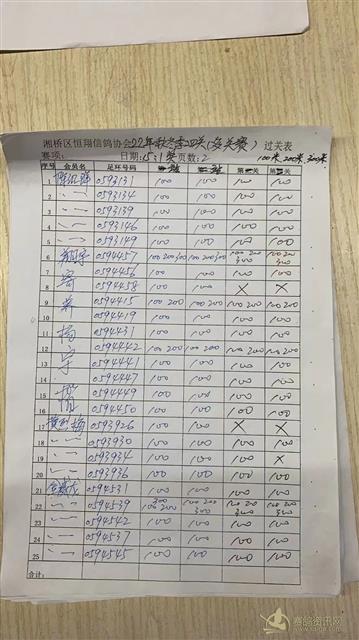 湘桥区恒翔信鸽协会22年秋冬季四关(多关赛)过关表
赛项: 日期: 页数:2 100米,200米,300米
序号 会员名 足环号码 第三关 第四关
1 0593131 100 100 100 100
2 〃 0593134 100 100 100 100
3 〃 0593139 100 100 100 100
4 〃 0593146 100 100 100 100
5 〃 0593149 100 100 100 100
6 0594457 100 200 300 100 200 300 100 200 300 100 200 300
7 0594456 100 100 100 100
8 0594458 100 100 × ×
9 0594415 100 200 100 200 100 200 100 200
10 0594419 100 100 100 100
11 杨 0594431 100 100 100 100
12 0594442 100 200 100 200 100 200 100 200
13 宇 0594441 100 100 100 100
14 0594447 100 100 100 100
15 0594449 100 100 100 100
16 0594450 100 100 100 100
17 0593926 100 100 × ×
18 〃 0593930 100 100 100 100
19 〃 0593934 100 100 100 ×
20 〃 0593936 100 100 100 100
21 0594531 100 100 100 100
22 〃 0594539 300 100 200 100 200 300 100 200 300 100 200 300
23 〃 0594542 100 100 100 100
24 〃 0594537 100 100 100 100
25 〃 0594545 100 100 100 100
合计:
赛鸽资讯网